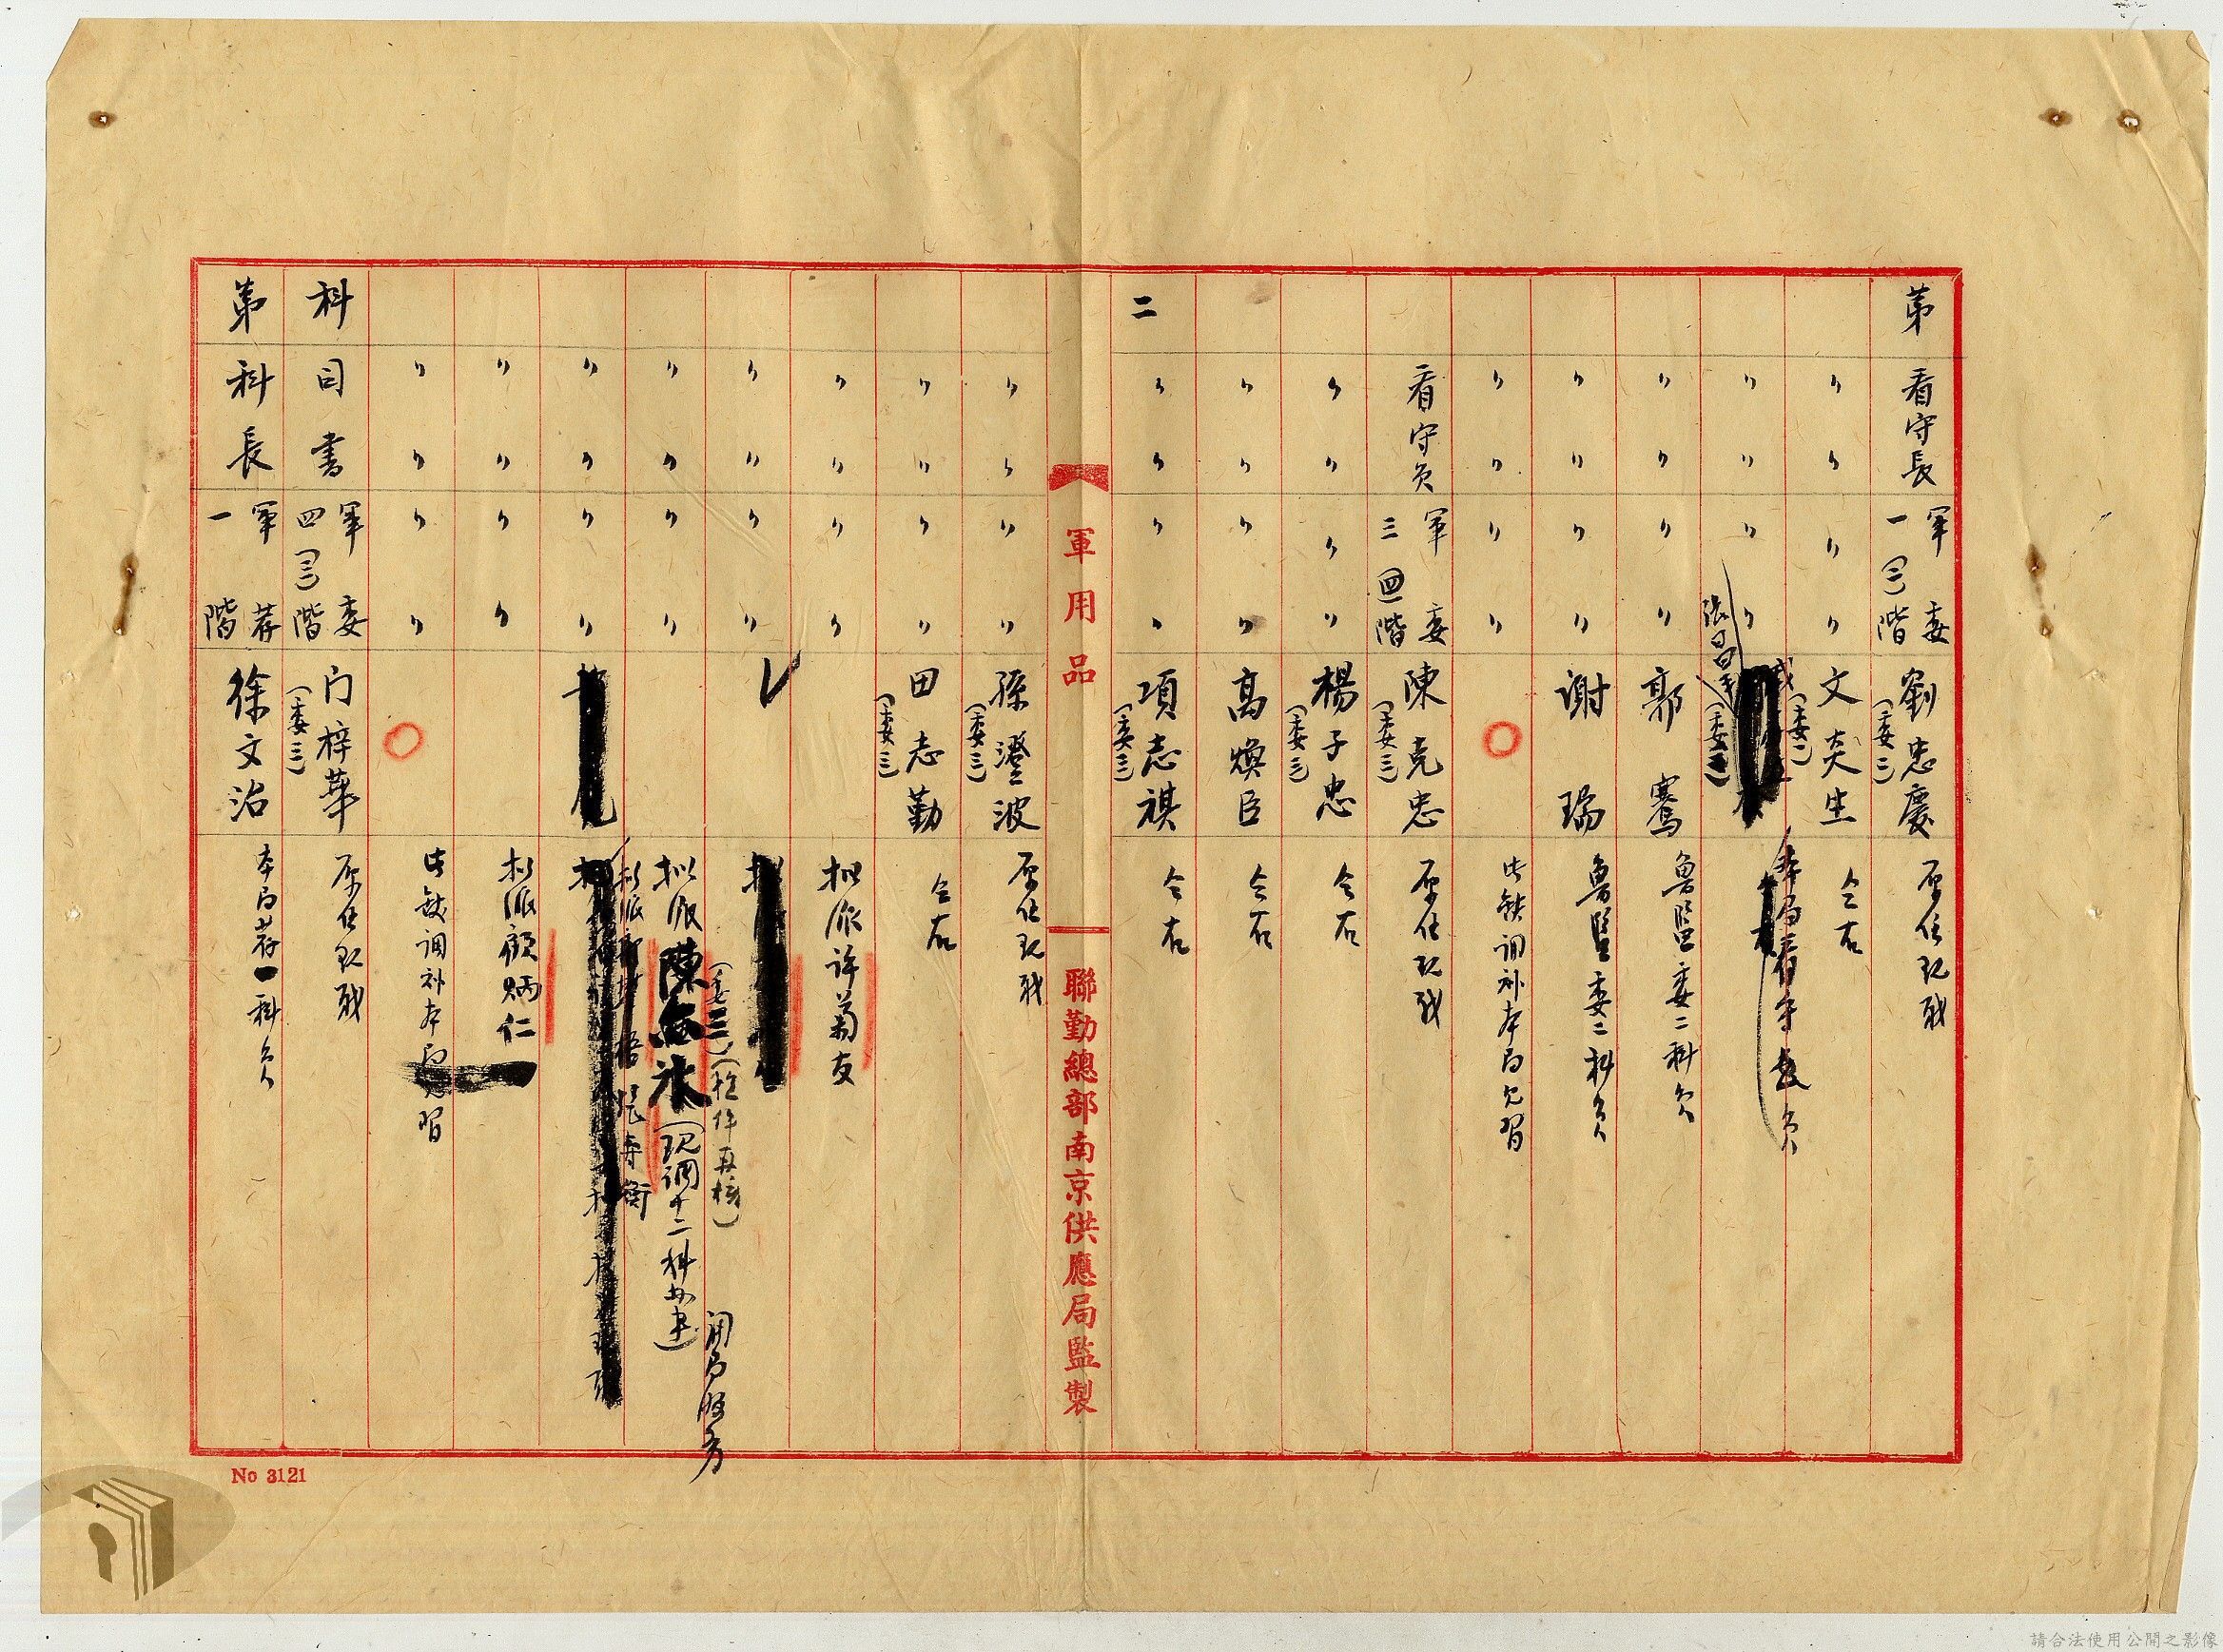 第 看守長 軍委一(二)階 劉忠慶(委二) 原任現職
〃 〃 〃 〃 文炎生(委二) 仝右
〃 〃 〃 〃 張昌 (委 ) 本局看守長員
〃 〃 〃 〃 郭騫 魯監委二科員
〃 〃 〃 〃 謝瑞 魯監委二科員
〃 〃 〃 〃 此缺调补本局見習
看守員 軍委三(四)階 陳克忠(委三) 原任現職
〃 〃 〃 〃 楊子忠(委三) 仝右
〃 〃 〃 〃 高煥臣 仝右
二 〃 〃 〃 〃 項志祺(委三) 仝右
軍用品
聯勤總部南京供應局監製
〃 〃 〃 〃 孫澄波(委三) 原任現職
〃 〃 〃 〃 田志勤(委三) 仝右
〃 〃 〃 〃 拟派許菊友
〃 〃 〃 〃
(委三)(檢件再核)
〃 〃 〃 〃 拟派陳 (現調十二科 ) 調局服务
拟派
〃 〃 〃 〃
〃 〃 〃 〃 拟派顧炳仁
〃 〃 〃 〃 此缺调补本局見習
科 司書 軍委四(三)階 门梓華(委三) 原任現職
第 科長 軍荐一階 徐文治 本局荐一科員
No 3121
請合法使用公開之影像